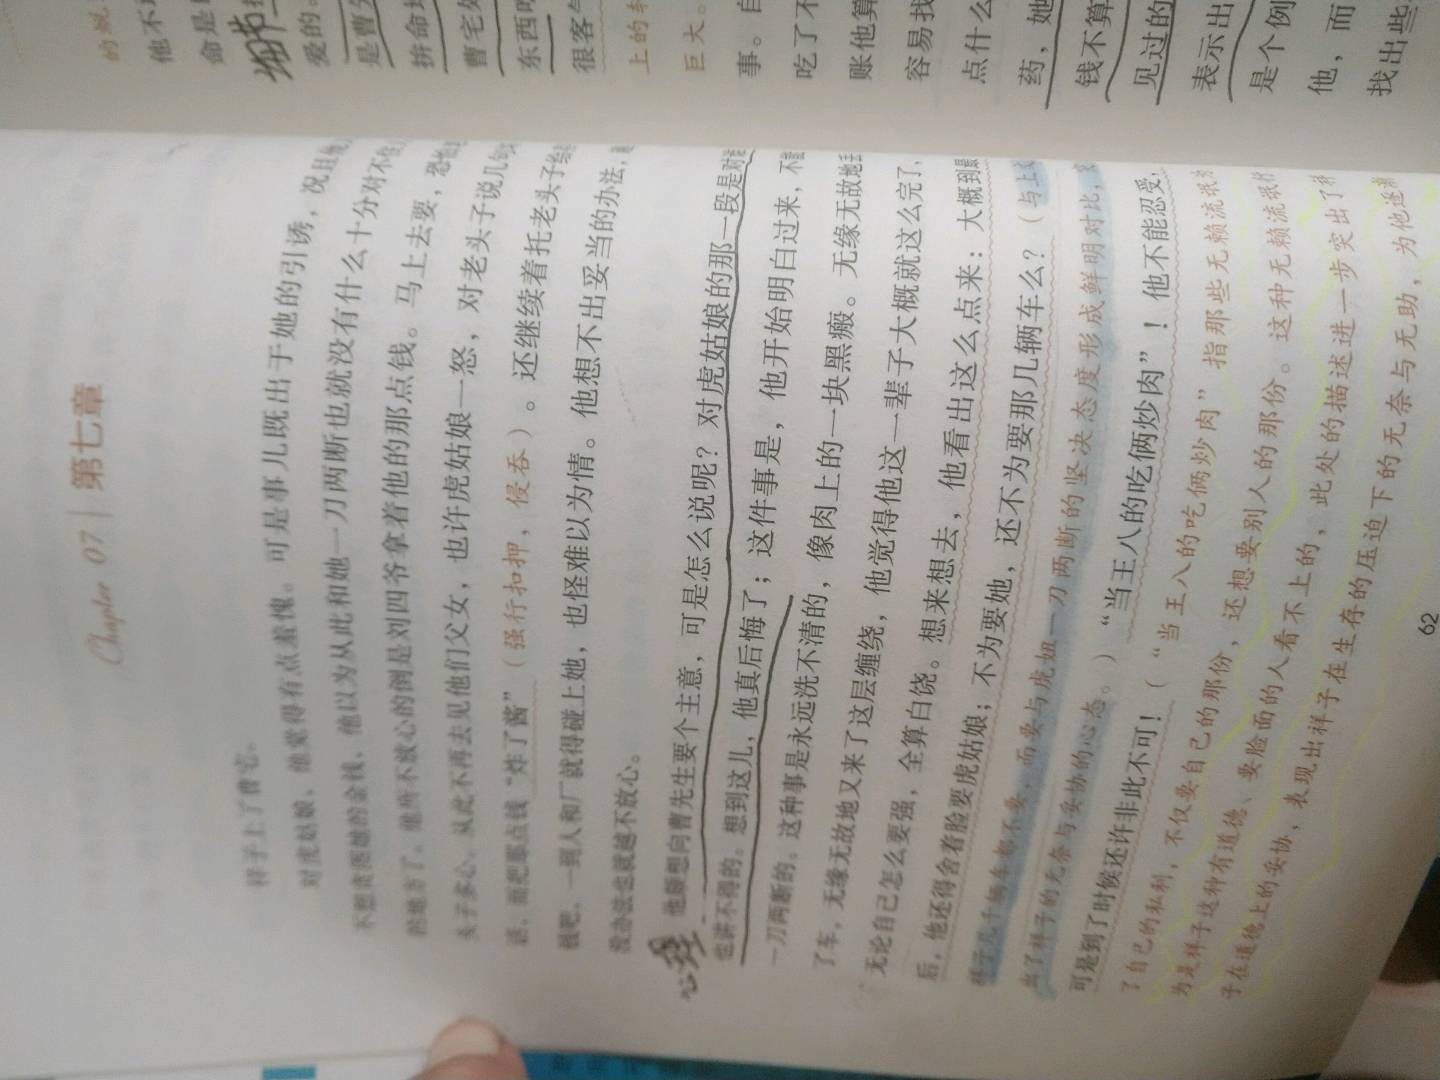 Chapter 07 | 第七章
祥子上了曹宅。
对虎姑娘，他觉得有点羞愧。可是事儿既出于她的引诱，况且他
不想贪图她的金钱，他以为从此和她一刀两断也就没有什么十分对不住
的地方了。他所不放心的倒是刘四爷拿着他的那点钱。马上去要，恐怕
头子多心。从此不再去见他们父女，也许虎姑娘一怒，对老头子说几句
话，而把那点钱“炸了酱”（强行扣押，侵吞）。还继续着托老头子
钱吧，一到人和厂就得碰上她，也怪难以为情。他想不出妥当的办法，
没办法也就越不放心。
他颇想向曹先生要个主意，可是怎么说呢？对虎姑娘的那一段是对
也讲不得的。想到这儿，他真后悔了；这件事是，他开始明白过来，不能
一刀两断的。这种事是永远洗不清的，像肉上的一块黑瘢。无缘无故地丢
了车，无缘无故地又来了这层缠绕，他觉得他这一辈子大概就这么完了，
无论自己怎么要强，全算白饶。想来想去，他看出这么点来：大概到最
后，他还得舍着脸要虎姑娘；不为要她，还不为要那几辆车么？（与上文
祥子几千辆车都不要，而要与虎妞一刀两断的坚决态度形成鲜明对比，
出了祥子的无奈与妥协的心态。）“当王八的吃俩炒肉”！他不能忍受，
可是到了时候还许非此不可！（“当王八的吃俩炒肉”指那些无赖流氓为
了自己的私利，不仅要自己的那份，还想要别人的那份。这种无赖流氓行
为是祥子这种有道德、要脸面的人看不上的，此处的描述进一步突出了祥
子在道德上的妥协，表现出祥子在生存的压迫下的无奈与无助，为他逐渐
62
心理
他不
命是
细节
爱的。
是曹
拼命
曹宅
东西
很客气
上的车
巨大。
事。自
吃了不
账他算
容易找
点什么
药，她
钱不算
见过的
表示出
是个例
他，而
找出些